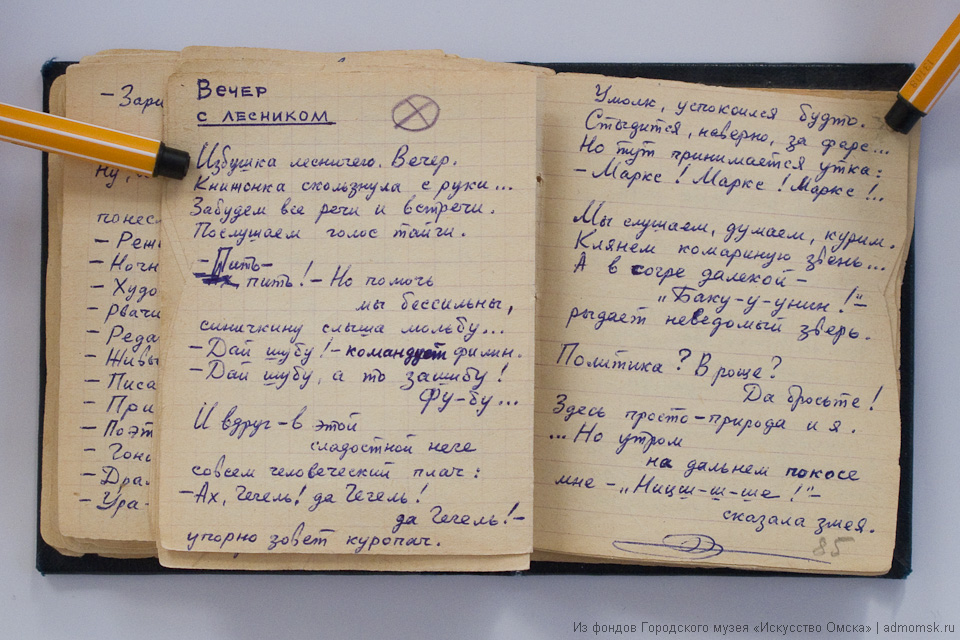 - Зари
ну,
понес
- Реж
- Ночн
- Худо
- Рвачи
- Реда
- Живы
- Писа
- При
- Поэт
- Гон
- Дра-
- Ура-
Вечер
с лесником
Избушка лесничего. Вечер.
Книжонка скользнула с руки...
Забудем все речи и встречи.
Послушаем голос тайги.
- Пить-
пить! - Но помочь
мы бессильны,
синичкину слыша мольбу...
- Дай шубу! - командует филин.
- Дай шубу, а то зашибу!
Фу-бу...
И вдруг - в этой
сладостной неге
совсем человеческий плач:
- Ах, Гегель! да Гегель!
да Гегель! -
упорно зовет куропач.
Умолк, успокоился будто.
Стыдится, наверно, за фарс...
Но тут принимается утка:
- Маркс! Маркс! Маркс!..
Мы слушаем, думаем, курим.
Клянем комариную звень...
А в согре далекой -
"Баку-у-унин!" -
рыдает неведомый зверь.
Политика? В роще?
Да бросьте!
Здесь просто - природа и я.
...Но утром
на дальнем покосе
мне - "Ницш-ш-ше!" -
сказала змея.
85
Из фондов Городского музея «Искусство Омска» | admomsk.ru